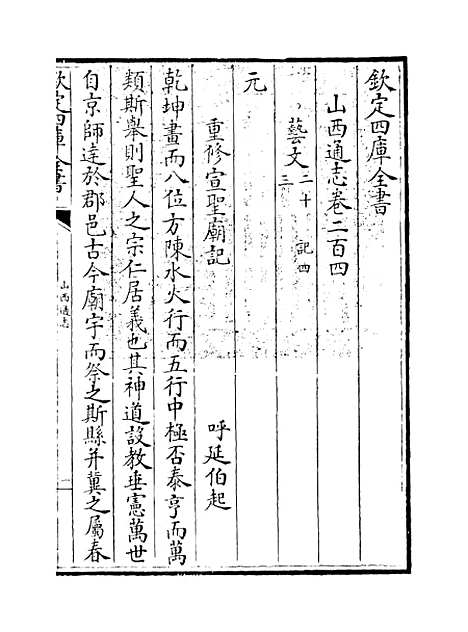 欽定四庫全書
山西通志卷二百四
藝文二十三 記四
元
重修宣聖廟記 呼延伯起
乾坤畫而八位方陳水火行而五行中極否泰亨而萬
類斯舉則聖人之宗仁居義也其神道設教垂憲萬世
自京師達於郡邑古今廟宇而祭之斯縣并冀之屬春
欽定四庫全書
山西通志
一